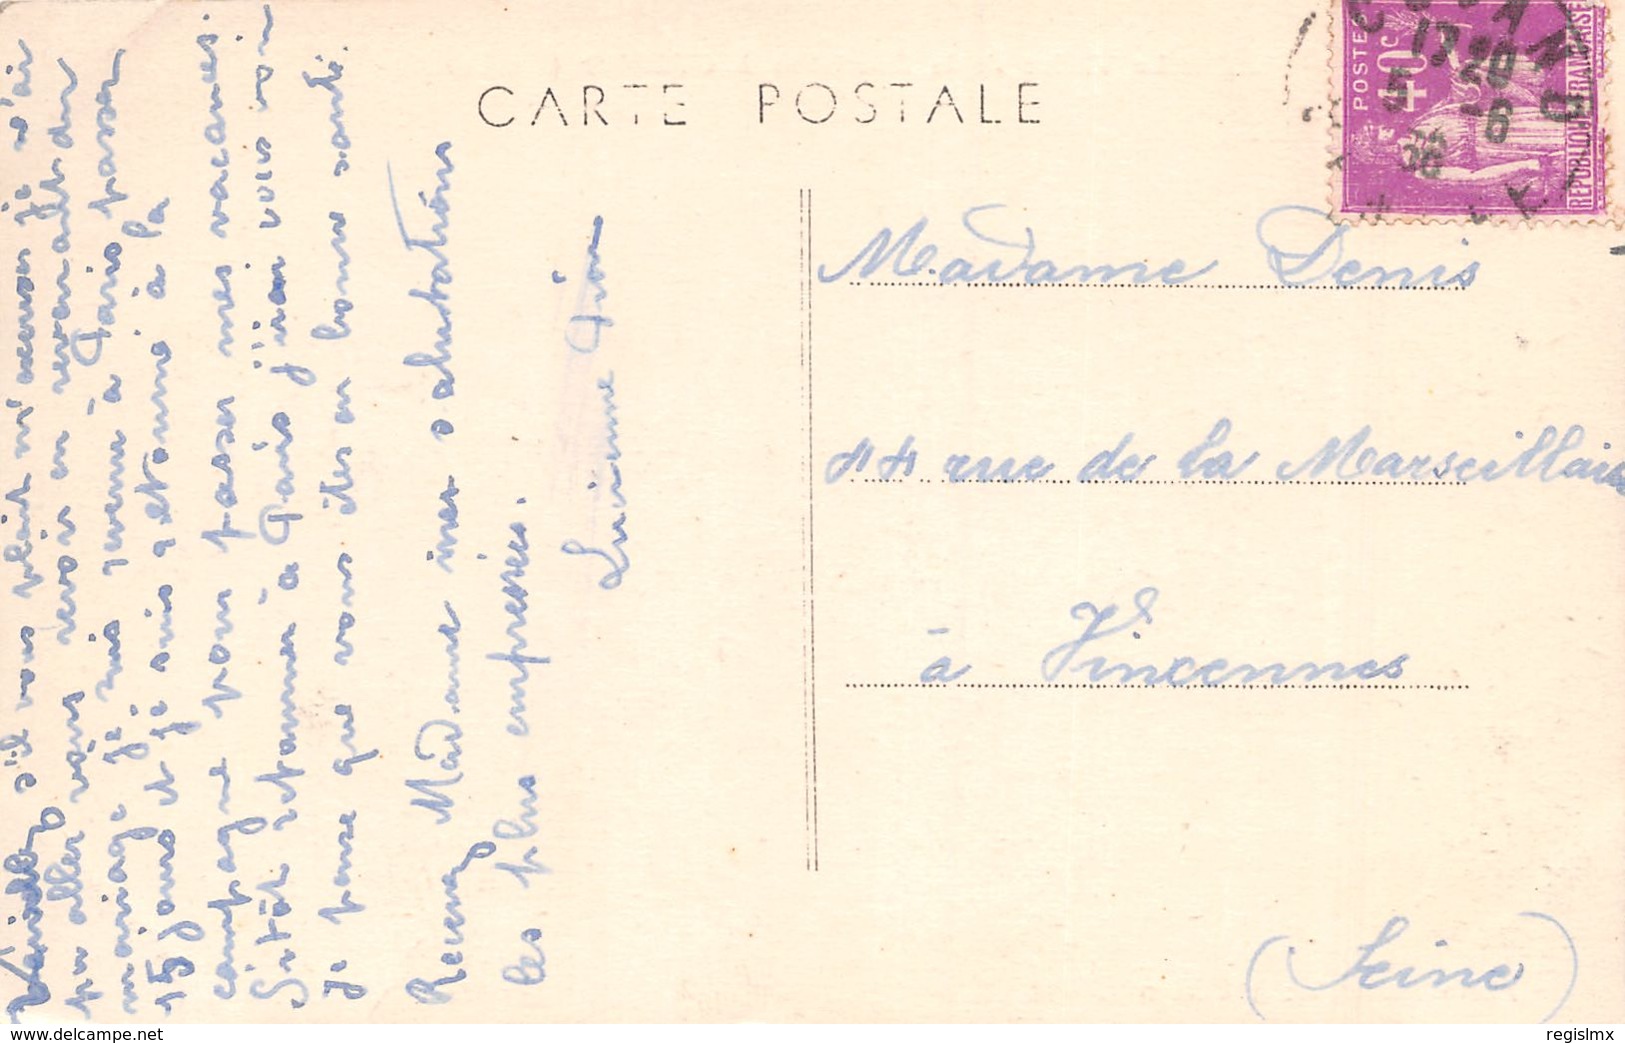 CARTE POSTALE
POSTES
40c
REPUBLIQUE FRANCAISE
17 20
5 6
36
Veuillez s'il vous plait m'excuser je n'ai
pu aller vous revoir en revenant du
mariage je suis revenu à Paris passer
15 jours et je suis retourné à la
campagne pour passer mes vacances.
Sitôt retourné à Paris j'irai vous voir
Je pense que vous êtes en bonne santé.
Recevez Madame mes salutations
les plus empressées.
Lucienne
Madame Denis
44 rue de la Marseillaise
à Vincennes
(Seine)
regislmx